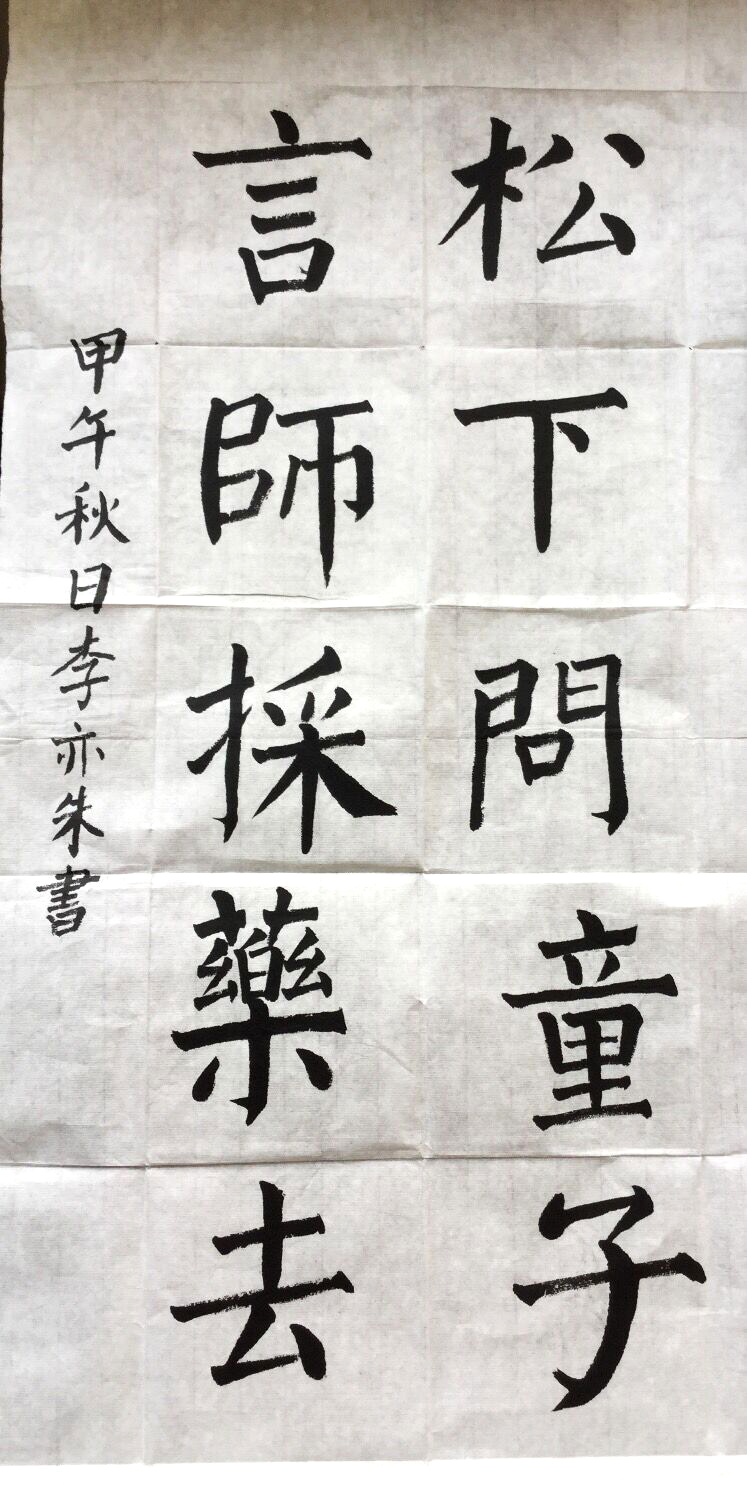 松下問童子
言師採藥去
甲午秋日李亦朱書